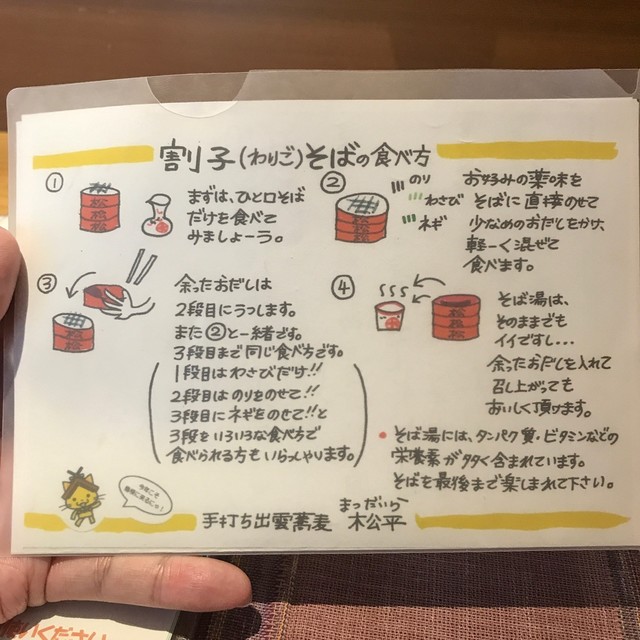 割子(わりご)そばの食べ方
①
まずは、ひと口そば
だけを食べて
みましょーう。
②
のり
わさび
ネギ
お好みの薬味を
そばに直接のせて
少なめのおだしをかけ、
軽ーく混ぜて
食べます。
③
余ったおだしは
2段目にうつします。
また②と一緒です。
3段目まで同じ食べ方です。
1段目はわさびだけ!!
2段目はのりをのせて!!
3段目にネギをのせて!!と
3段をいろいろな食べ方で
食べられる方もいらっしゃいます。
④
そば湯は、
そのままでも
イイですし...
余ったおだしを入れて
召し上がっても
おいしく頂けます。
● そば湯には、タンパク質・ビタミンなどの
栄養素が多く含まれています。
そばを最後まで楽しまれて下さい。
まつだいら
手打ち出雲蕎麦 松平
松
松
松
ください